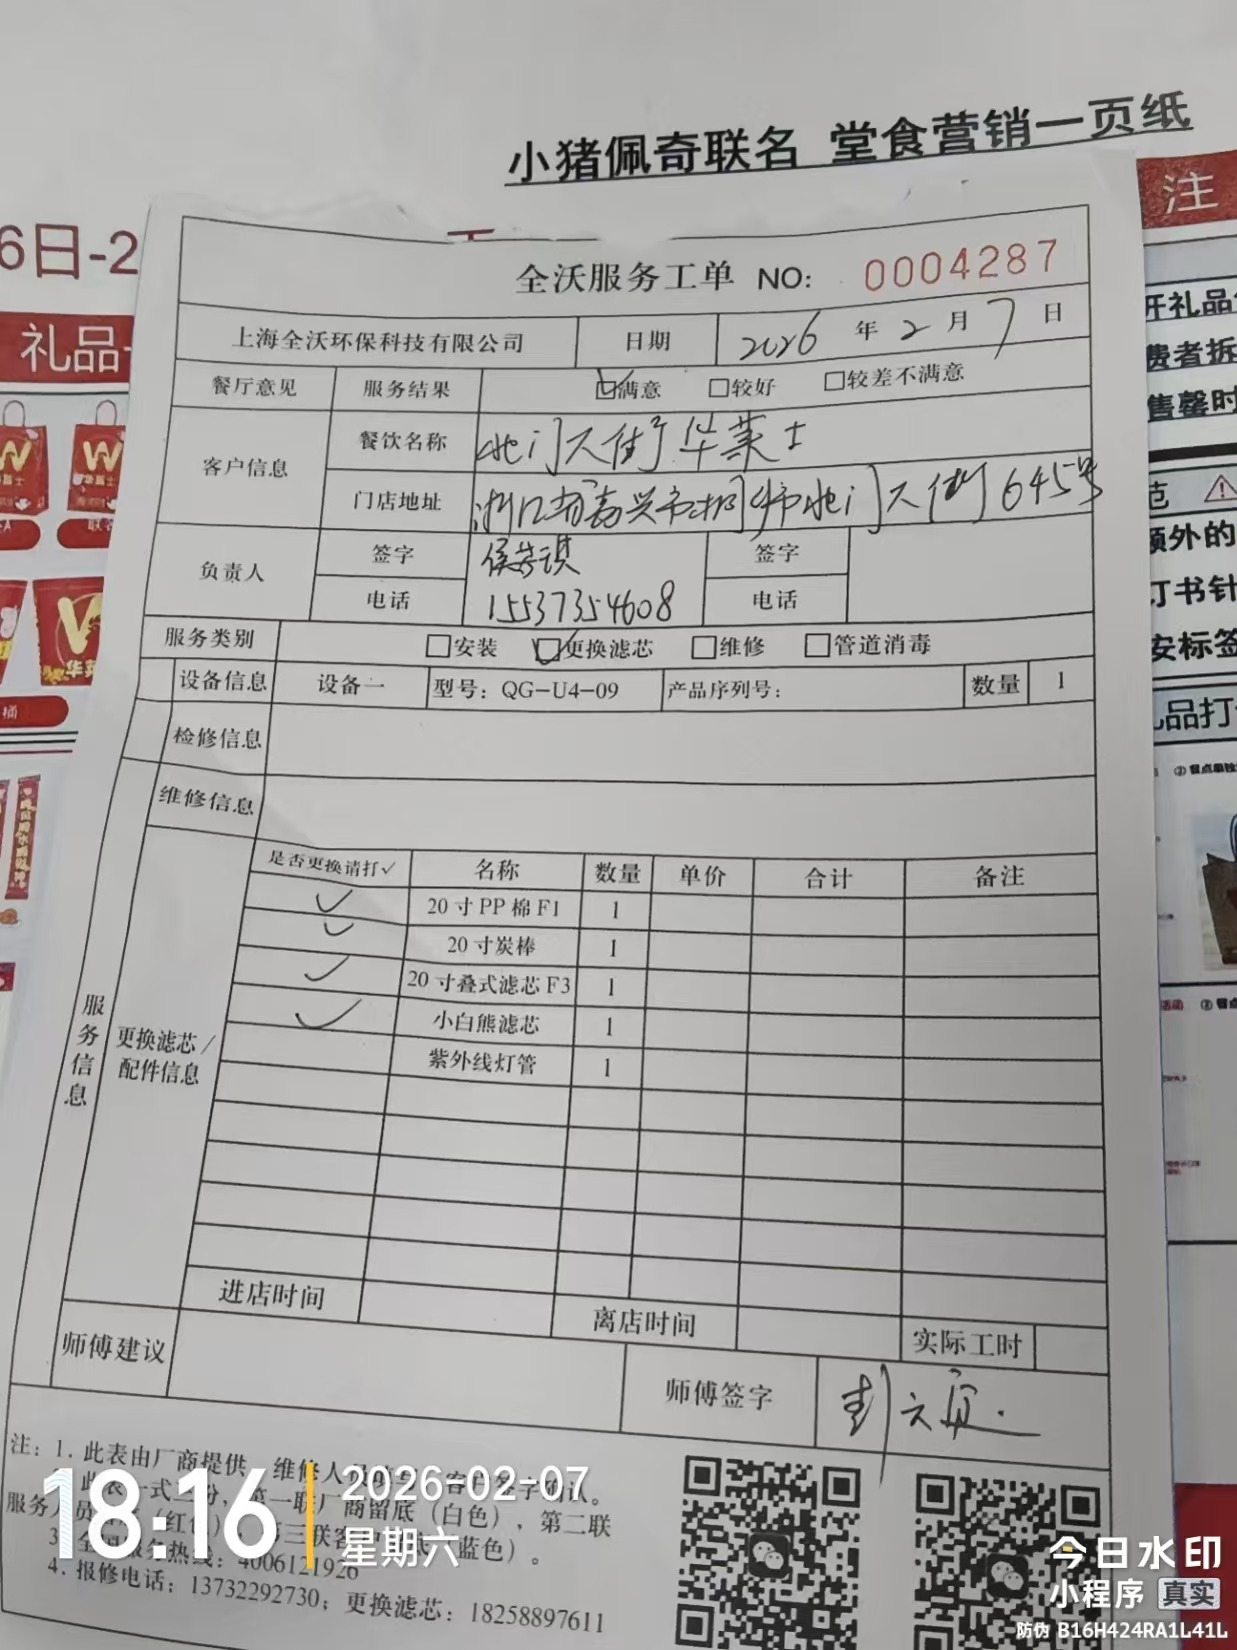 小猪佩奇联名 堂食营销一页纸
注
6日-2
礼品
全沃服务工单 NO: 0004287
上海全沃环保科技有限公司 日期 2026 年 2 月 7 日
餐厅意见 服务结果 ☑满意 □较好 □较差不满意
客户信息 餐饮名称 北门大街华莱士
门店地址 浙江省嘉兴市桐乡市北门大街645号
负责人 签字 签字
电话 15537354608 电话
服务类别 □安装 ☑更换滤芯 □维修 □管道消毒
设备信息 设备一 型号：QG-U4-09 产品序列号： 数量 1
检修信息
维修信息
服务信息
更换滤芯/配件信息
是否更换请打✓ 名称 数量 单价 合计 备注
✓ 20寸PP棉F1 1
✓ 20寸炭棒 1
✓ 20寸叠式滤芯F3 1
✓ 小白熊滤芯 1
紫外线灯管 1
进店时间 离店时间 实际工时
师傅建议 师傅签字
注：1. 此表由厂商提供，维修人员 客户签字确认。
一式三份，第一联厂商留底（白色），第二联
服务人员 （红色），第三联客 （蓝色）。
3. 全国服务热线：4006121926
4. 报修电话：13732292730；更换滤芯：18258897611
18:16
2026-02-07
星期六
今日水印
小程序 真实
防伪 B16H424RA1L41L
开礼品
费者拆
售罄时
额外的
订书针
安标签
品打